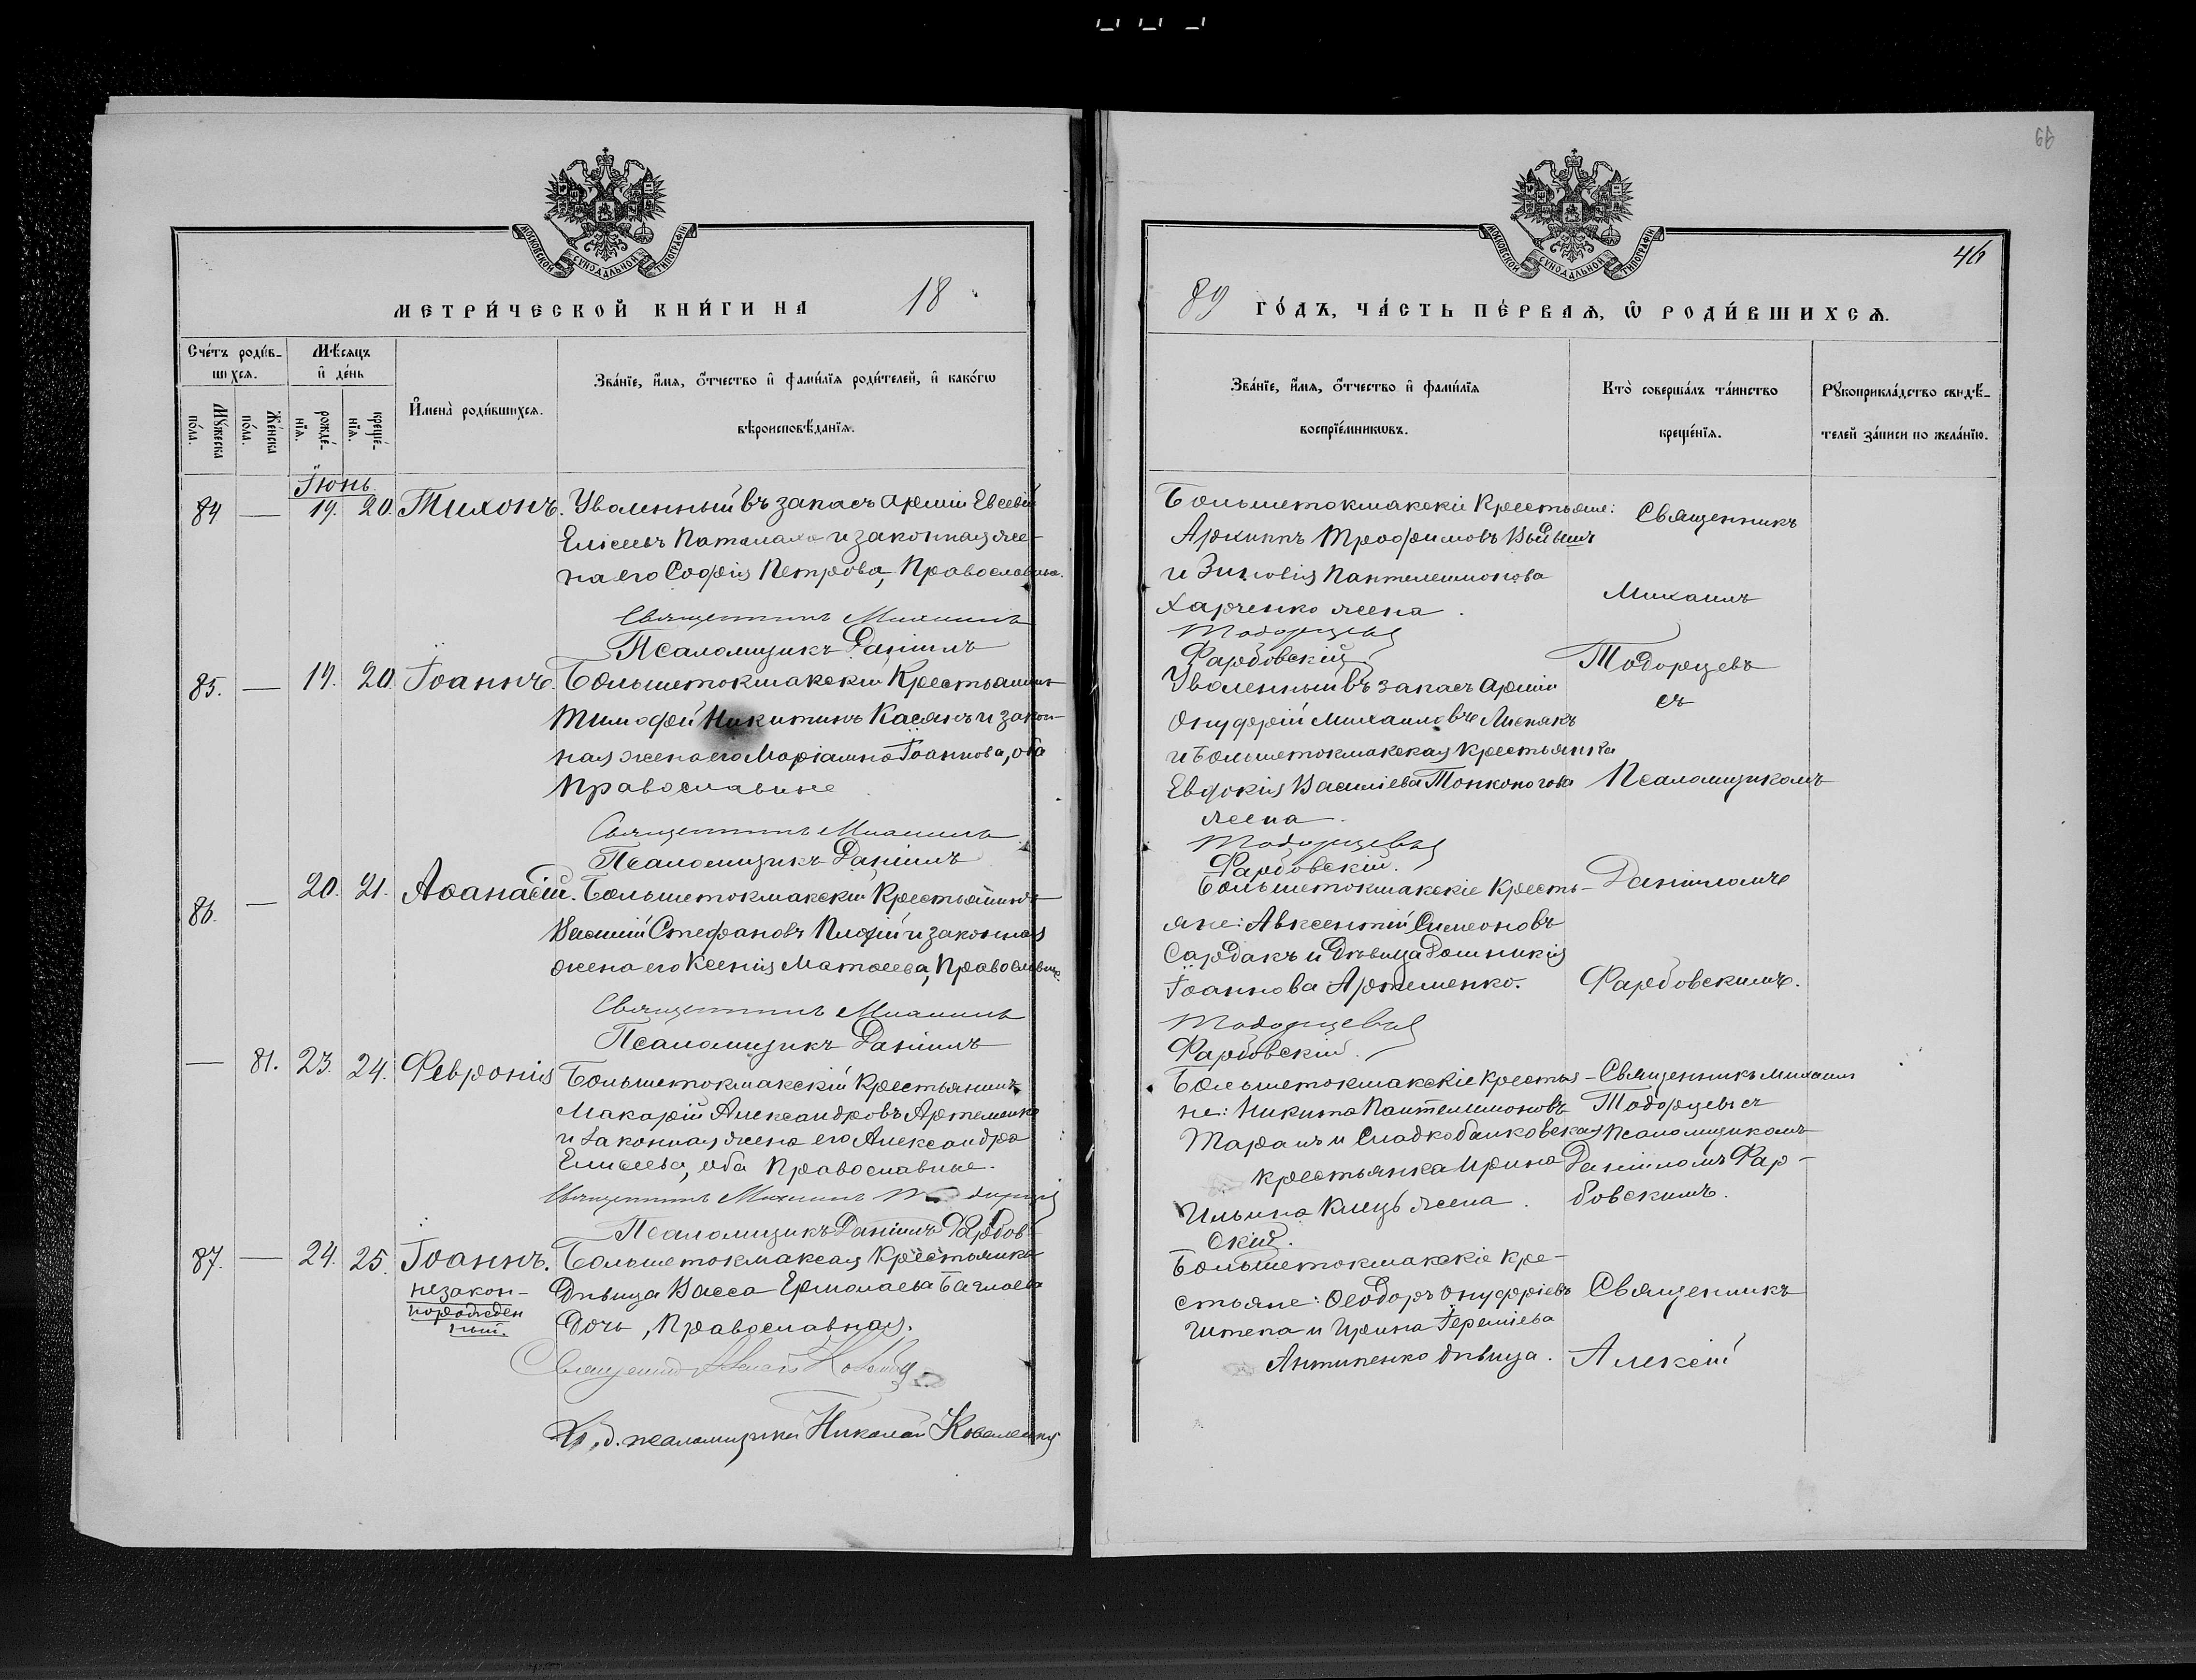 66
МОСКОВСКОЙ СѴНОДАЛЬНОЙ ТИПОГРАФІИ
МЕТРИ́ЧЕСКОЙ КНИ́ГИ НА 18
Сче́тъ роди́в-
шихсѧ.
Мѣ́сѧцъ
и҆ де́нь
Мꙋ́жеска по́ла.
Же́нска по́ла.
рожде́-
нїѧ.
креще́-
нїѧ.
И҆мена̀ роди́вшихсѧ.
Зва́нїе, и҆́мѧ, ѻ҆́тчество и҆ фами́лїѧ роди́телей, и҆ како́гѡ
вѣроисповѣ́данїѧ.
Іюнь
84 — 19. 20. Тихонъ. Уволенный въ запасъ арміи Евсевій
Елисеевъ и законная же-
на его Софія Петрова, Православные.
Священникъ Михаилъ
Псаломщикъ Даніилъ
85. — 19. 20 Іоаннъ. Большетокмакскій Крестьянинъ
Тимофей Никитинъ Касянъ и закон-
ная жена его Маріамна Іоаннова, оба
Православные
Священникъ Михаилъ
Псаломщикъ Даніилъ
86. — 20. 21. Аѳанасій. Большетокмакскій Крестьянинъ
Василій Стефановъ и законная
жена его Ксенія Матѳеева, Православные.
Священникъ Михаилъ
Псаломщикъ Даніилъ
— 81. 23. 24. Февронія Большетокмакскій Крестьянинъ
Макарій Александровъ Артеменко
и законная жена его Александра
Елисеева, оба Православные.
Священникъ Михаилъ
Псаломщикъ Даніилъ Фарбов-
87. — 24. 25. Іоаннъ. Большетокмакская Крестьянка
незакон-
норожден
ный.
Дѣвица Васса Ермолаева Баглаева
Дочь, Православная.
Священникъ
И. д. псаломщика Николай Коваленко
МОСКОВСКОЙ СѴНОДАЛЬНОЙ ТИПОГРАФІИ
46
89 ГО́ДЪ, ЧА́СТЬ ПЕ́РВАѦ, Ѡ҆ РОДИ́ВШИХСѦ.
Зва́нїе, и҆́мѧ, ѻ҆́тчество и҆ фами́лїѧ
воспрїе́мникѡвъ.
Кто̀ соверша́лъ та́инство
креще́нїѧ.
Рꙋкоприкла́дство свидѣ́-
телей за́писи по жела́нїю.
Большетокмакскіе Крестьяне:
Архиппъ Трофимовъ
и Зиновія Пантелеимонова
Харченко жена.
Тодорцевъ
Фарбовскій.
Уволенный въ запасъ арміи
Онуфрій Михаиловъ Лиснякъ
и Большетокмакская Крестьянка
Евдокія Василіева Тонконогова
жена.
Тодорцевъ
Фарбовскій.
Священникъ
Михаилъ
Тодорцевъ
съ
Псаломщикомъ
Даніиломъ
Фарбовскимъ.
Большетокмакскіе Кресть-
яне: Авксентій Симеоновъ
Сардакъ и Дѣвица Домникія
Іоаннова Артеменко.
Тодорцевъ
Фарбовскій.
Большетокмакскіе крестья-
не: Никита Пантелимоновъ
Таранъ и Сладкобалковская
крестьянка Ирина
Ильина Клецъ жена.
скій.
Священникъ Михаилъ
Тодорцевъ съ
Псаломщикомъ
Даніиломъ Фар-
бовскимъ.
Большетокмакскіе Кре-
стьяне: Ѳеодоръ Онуфріевъ
Штепа и Ирина Іереміева
Антипенко дѣвица.
Священникъ
Алексій